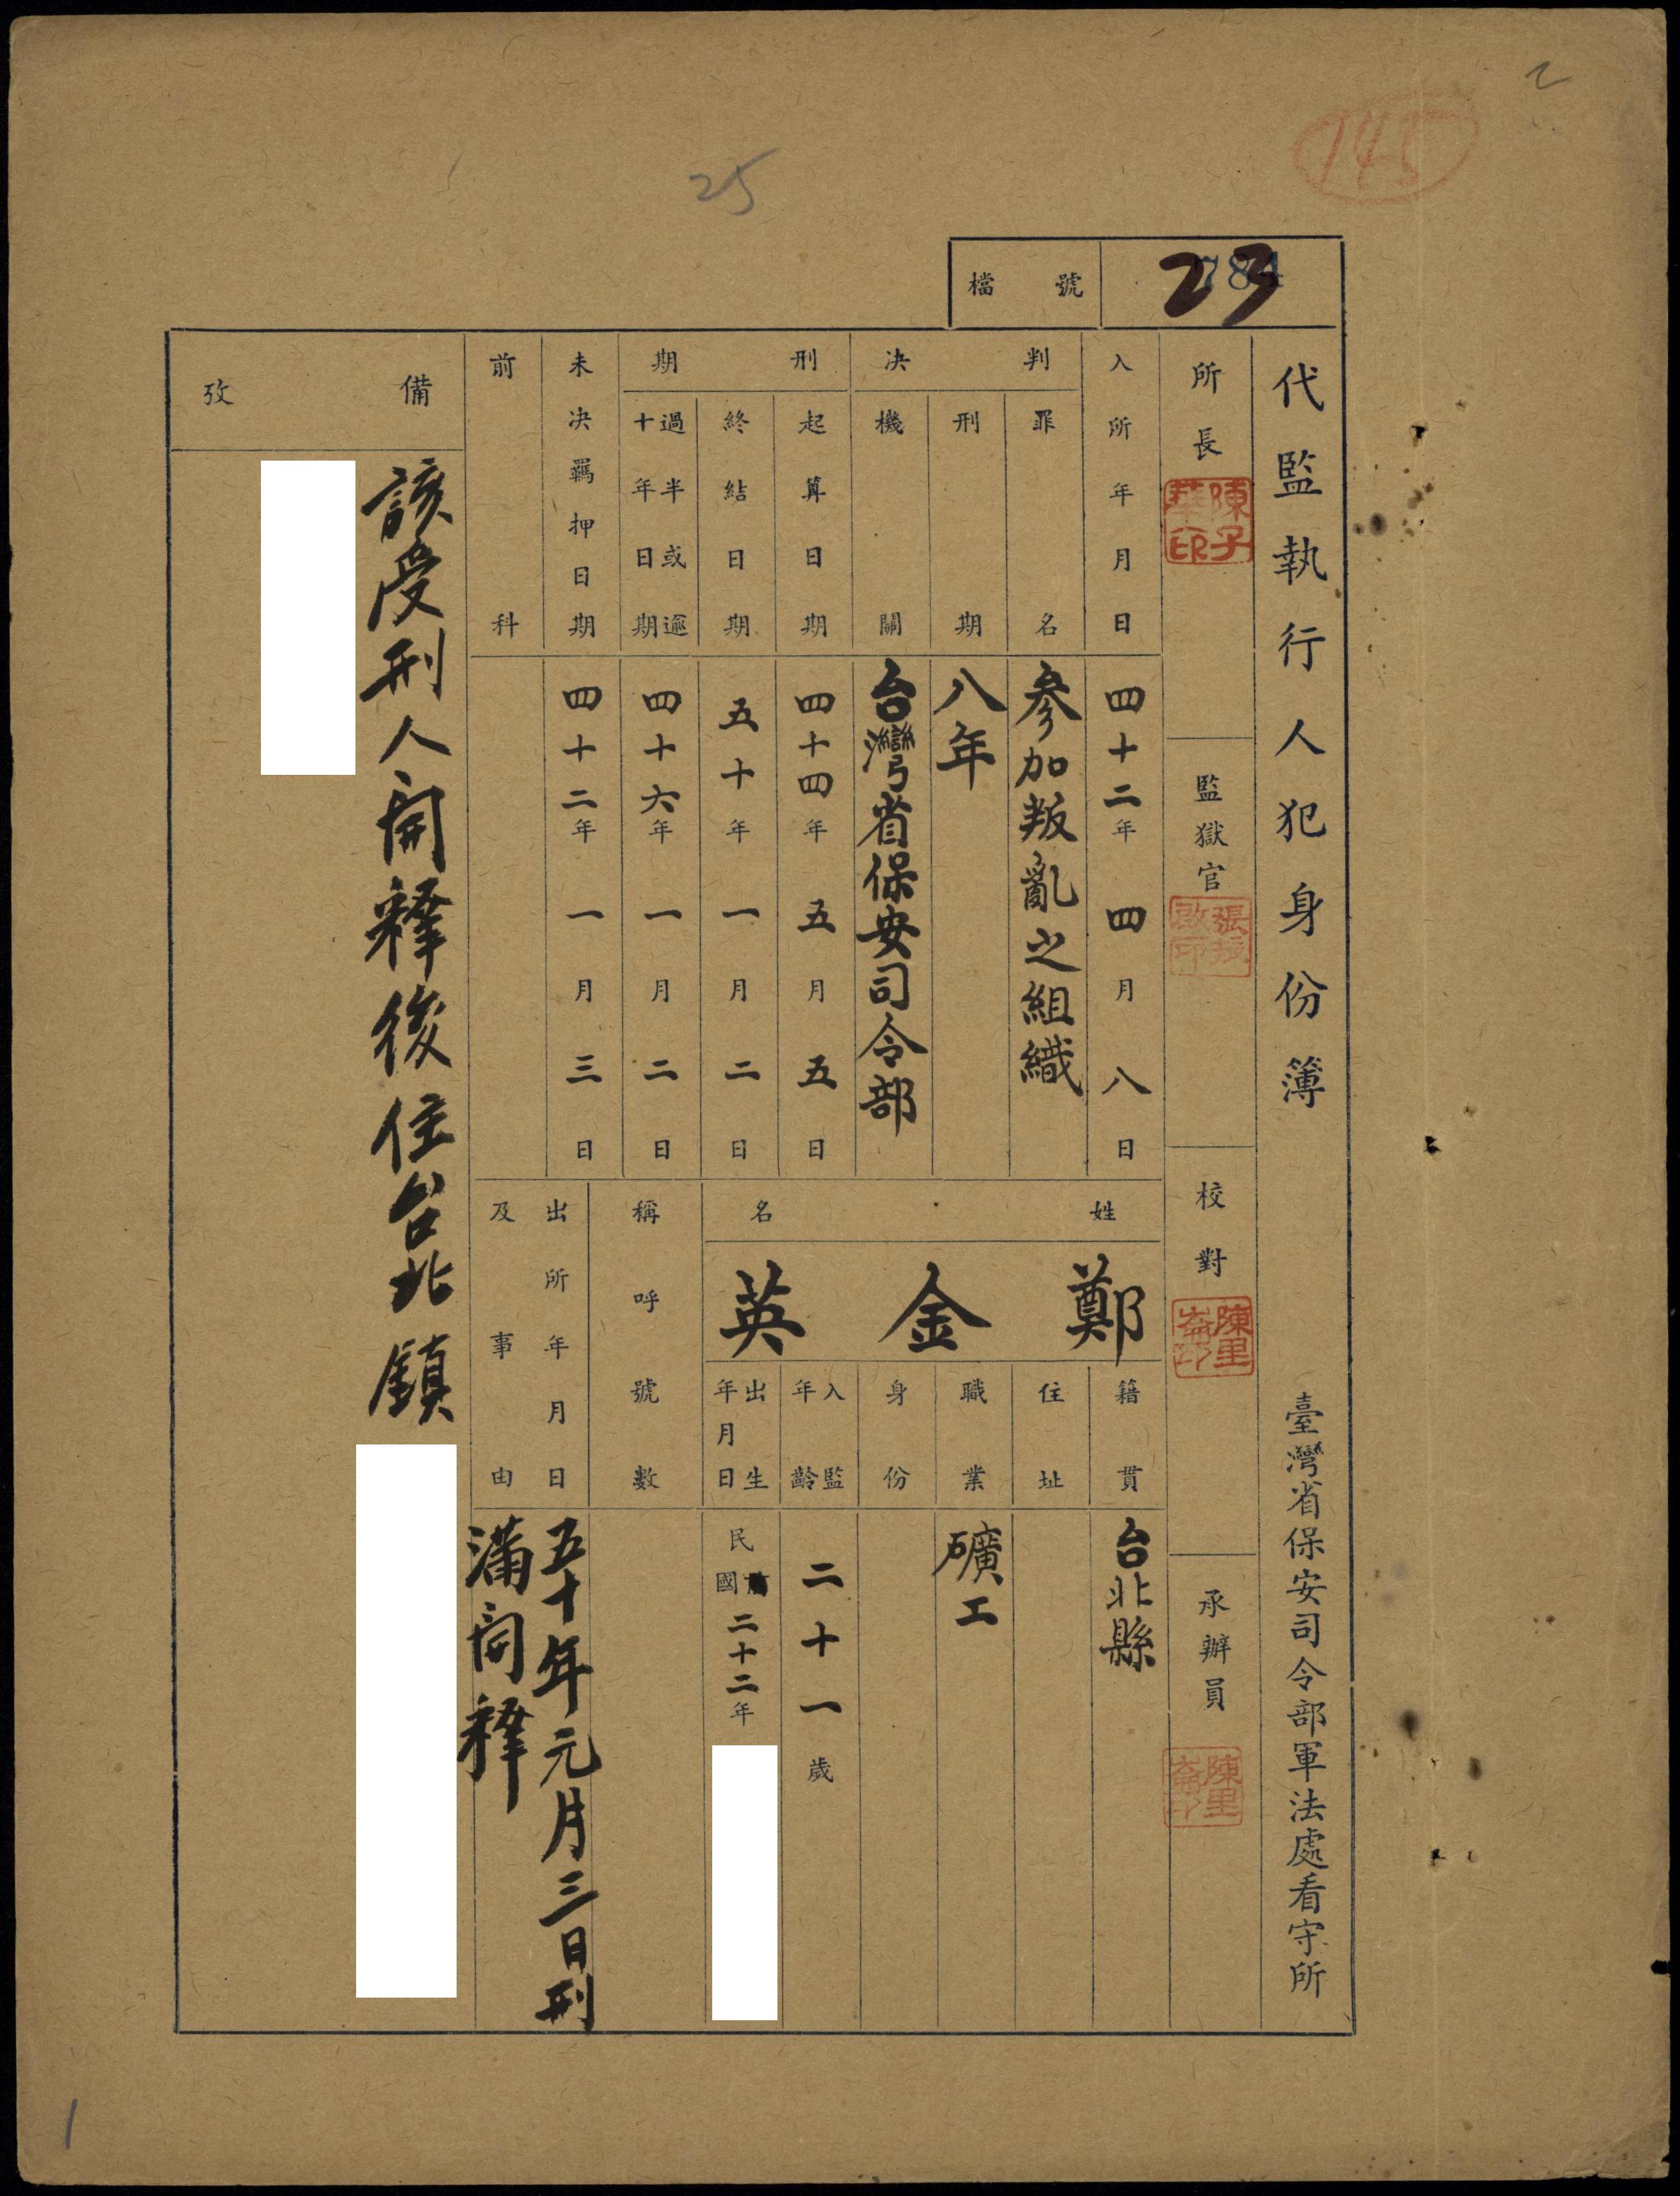 2
145
25
檔號
23
代監執行人犯身份簿
臺灣省保安司令部軍法處看守所
所長
陳子華印
監獄官
校對
陳里崙印
承辦員
陳里崙印
入所年月日
四十二年四月八日
判決
罪名
參加叛亂之組織
刑期
八年
機關
台灣省保安司令部
刑期
起算日期
四十四年五月五日
終結日期
五十年一月二日
過半或逾十年日期
四十六年一月二日
未決羈押日期
四十二年一月三日
前科
姓名
鄭金英
籍貫
台北縣
住址
職業
礦工
身份
入監年齡
二十一歲
出生年月日
民國二十二年
稱呼號數
出所年月日及事由
五十年元月三日刑
滿開釋
備攷
該受刑人開釋後住台北鎮
1